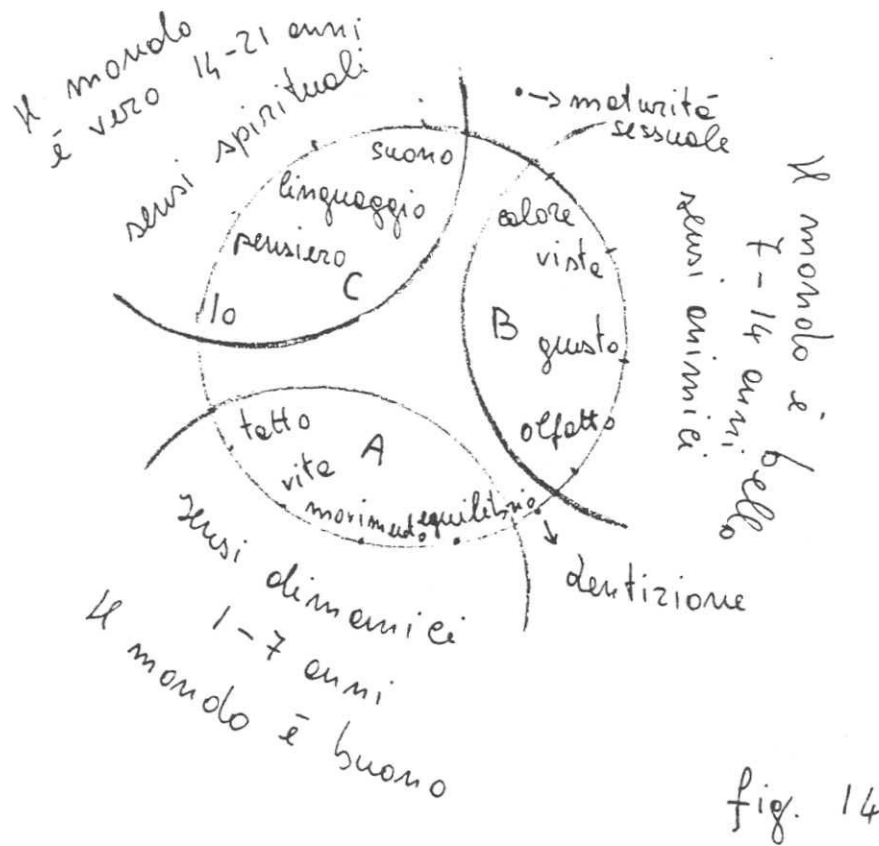 Il mondo
é vero 14-21 anni
sensi spirituali
suono
linguaggio
pensiero
Io
C
•→ maturità
sessuale
calore
vista
B
gusto
olfatto
Il mondo é bello
7-14 anni
sensi animici
tatto
vita
A
movimento
equilibrio
↓
dentizione
sensi dinamici
1-7 anni
Il mondo é buono
fig. 14